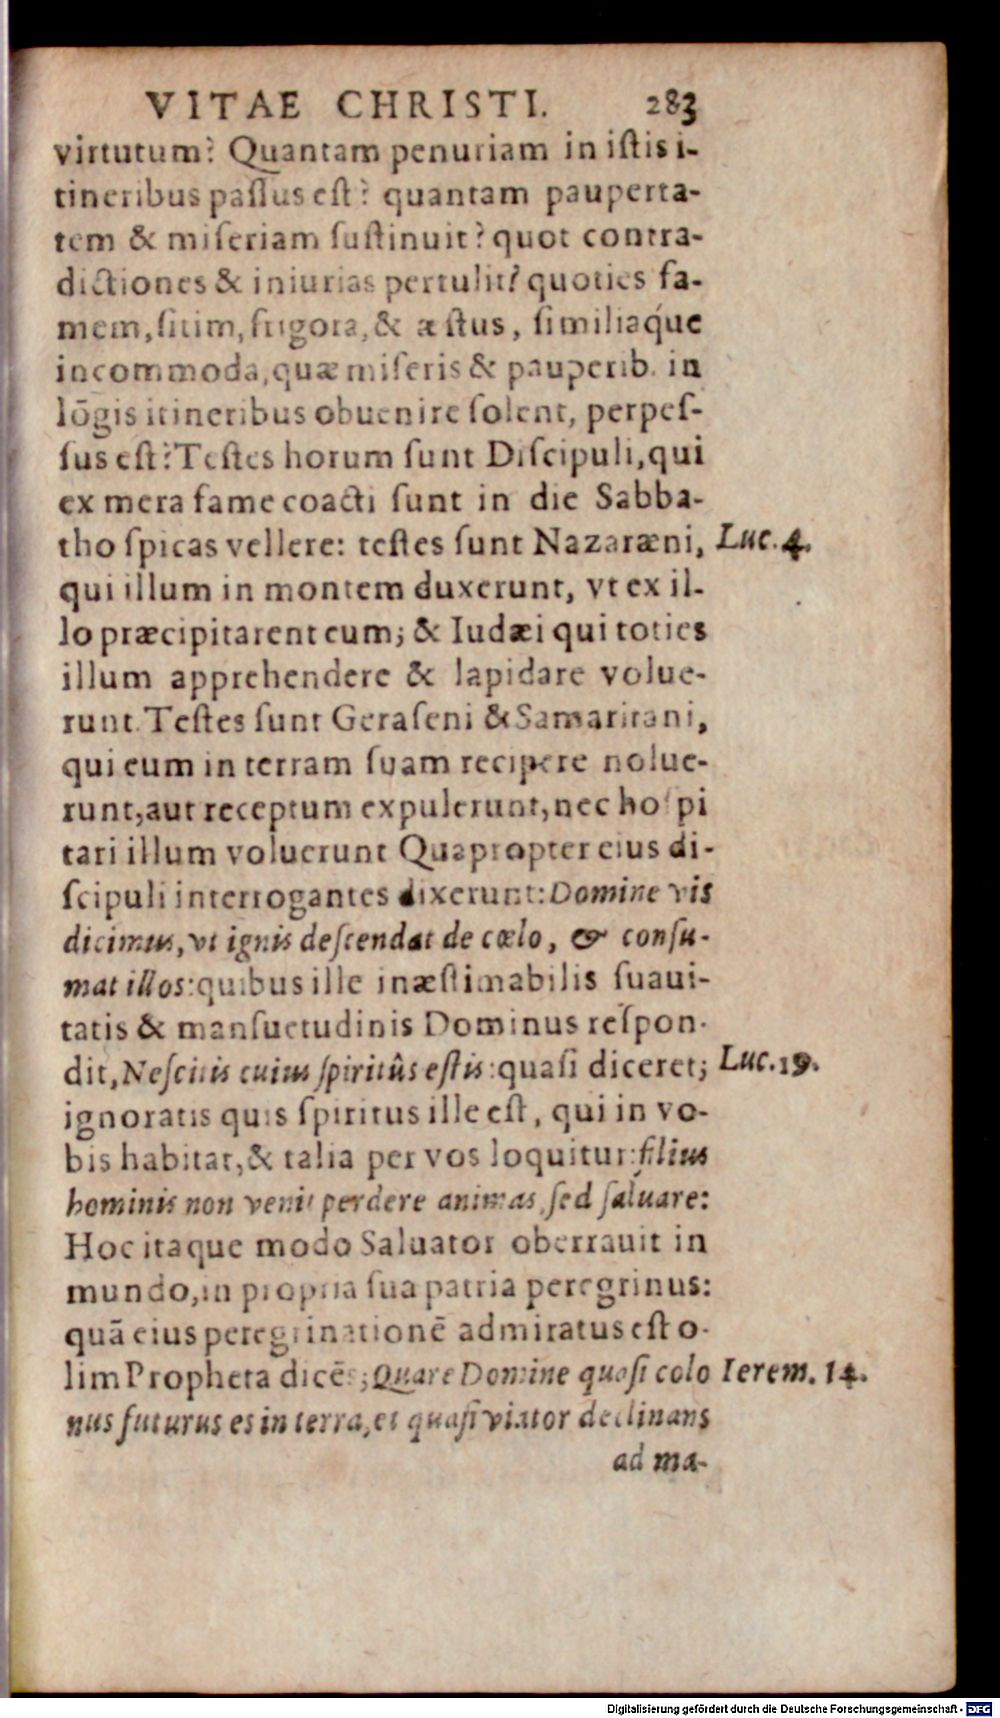 VITAE CHRISTI. 283
virtutum? Quantam penuriam in iſtis i-
tineribus paſſus eſt? quantam pauperta-
tem & miſeriam ſuſtinuit? quot contra-
dictiones & iniurias pertulit? quoties fa-
mem, ſitim, frigora, & æſtus, ſimiliáque
incommoda, quæ miſeris & pauperib. in
lōgis itineribus obuenire ſolent, perpeſ-
ſus eſt? Teſtes horum ſunt Diſcipuli, qui
ex mera fame coacti ſunt in die Sabba-
tho ſpicas vellere: teſtes ſunt Nazaræni, Luc. 4.
qui illum in montem duxerunt, vt ex il-
lo præcipitarent eum; & Iudæi qui toties
illum apprehendere & lapidare volue-
runt. Teſtes ſunt Geraſeni & Samaritani,
qui eum in terram ſuam recipere nolue-
runt, aut receptum expulerunt, nec hoſpi
tari illum voluerunt Quapropter eius di-
ſcipuli interrogantes dixerunt: Domine vis
dicimus, vt ignis deſcendat de cœlo, & conſu-
mat illos: quibus ille inæſtimabilis ſuaui-
tatis & manſuetudinis Dominus reſpon-
dit, Neſcitis cuius ſpiritûs eſtis: quaſi diceret; Luc. 19.
ignoratis quis ſpiritus ille eſt, qui in vo-
bis habitat, & talia per vos loquitur: filius
hominis non venit perdere animas, ſed ſaluare:
Hoc itaque modo Saluator oberrauit in
mundo, in propria ſua patria peregrinus:
quā eius peregrinationē admiratus eſt o-
lim Propheta dicēs; Quare Domine quaſi colo Ierem. 14.
nus futurus es in terra, et quaſi viator declinans
ad ma-
Digitalisierung gefördert durch die Deutsche Forschungsgemeinschaft - DFG